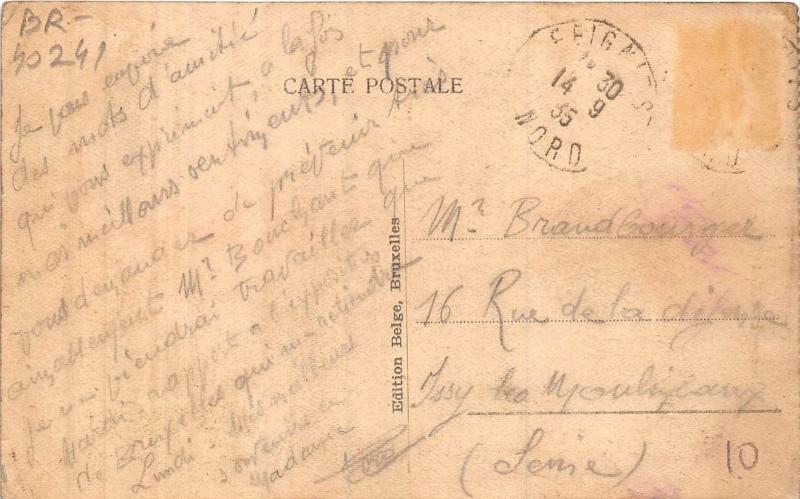 BR-
40241
CARTE POSTALE
Je vous envoie
des mots d'amitié
qui vous exprimait, à la fois
mes meilleurs sentiments, et pour
vous demander de prévenir très
aimablement Mr Bouchant que
je ne viendrai travailler que
Mardi rapport à l'exposition
de Bruxelles qui
Lundi. meilleurs
Madame
Edition Belge, Bruxelles
14 30
14 9
35
NORD
Mr Brandbourger
16 Rue de la défense
Issy les Moulineaux
(Seine)
10